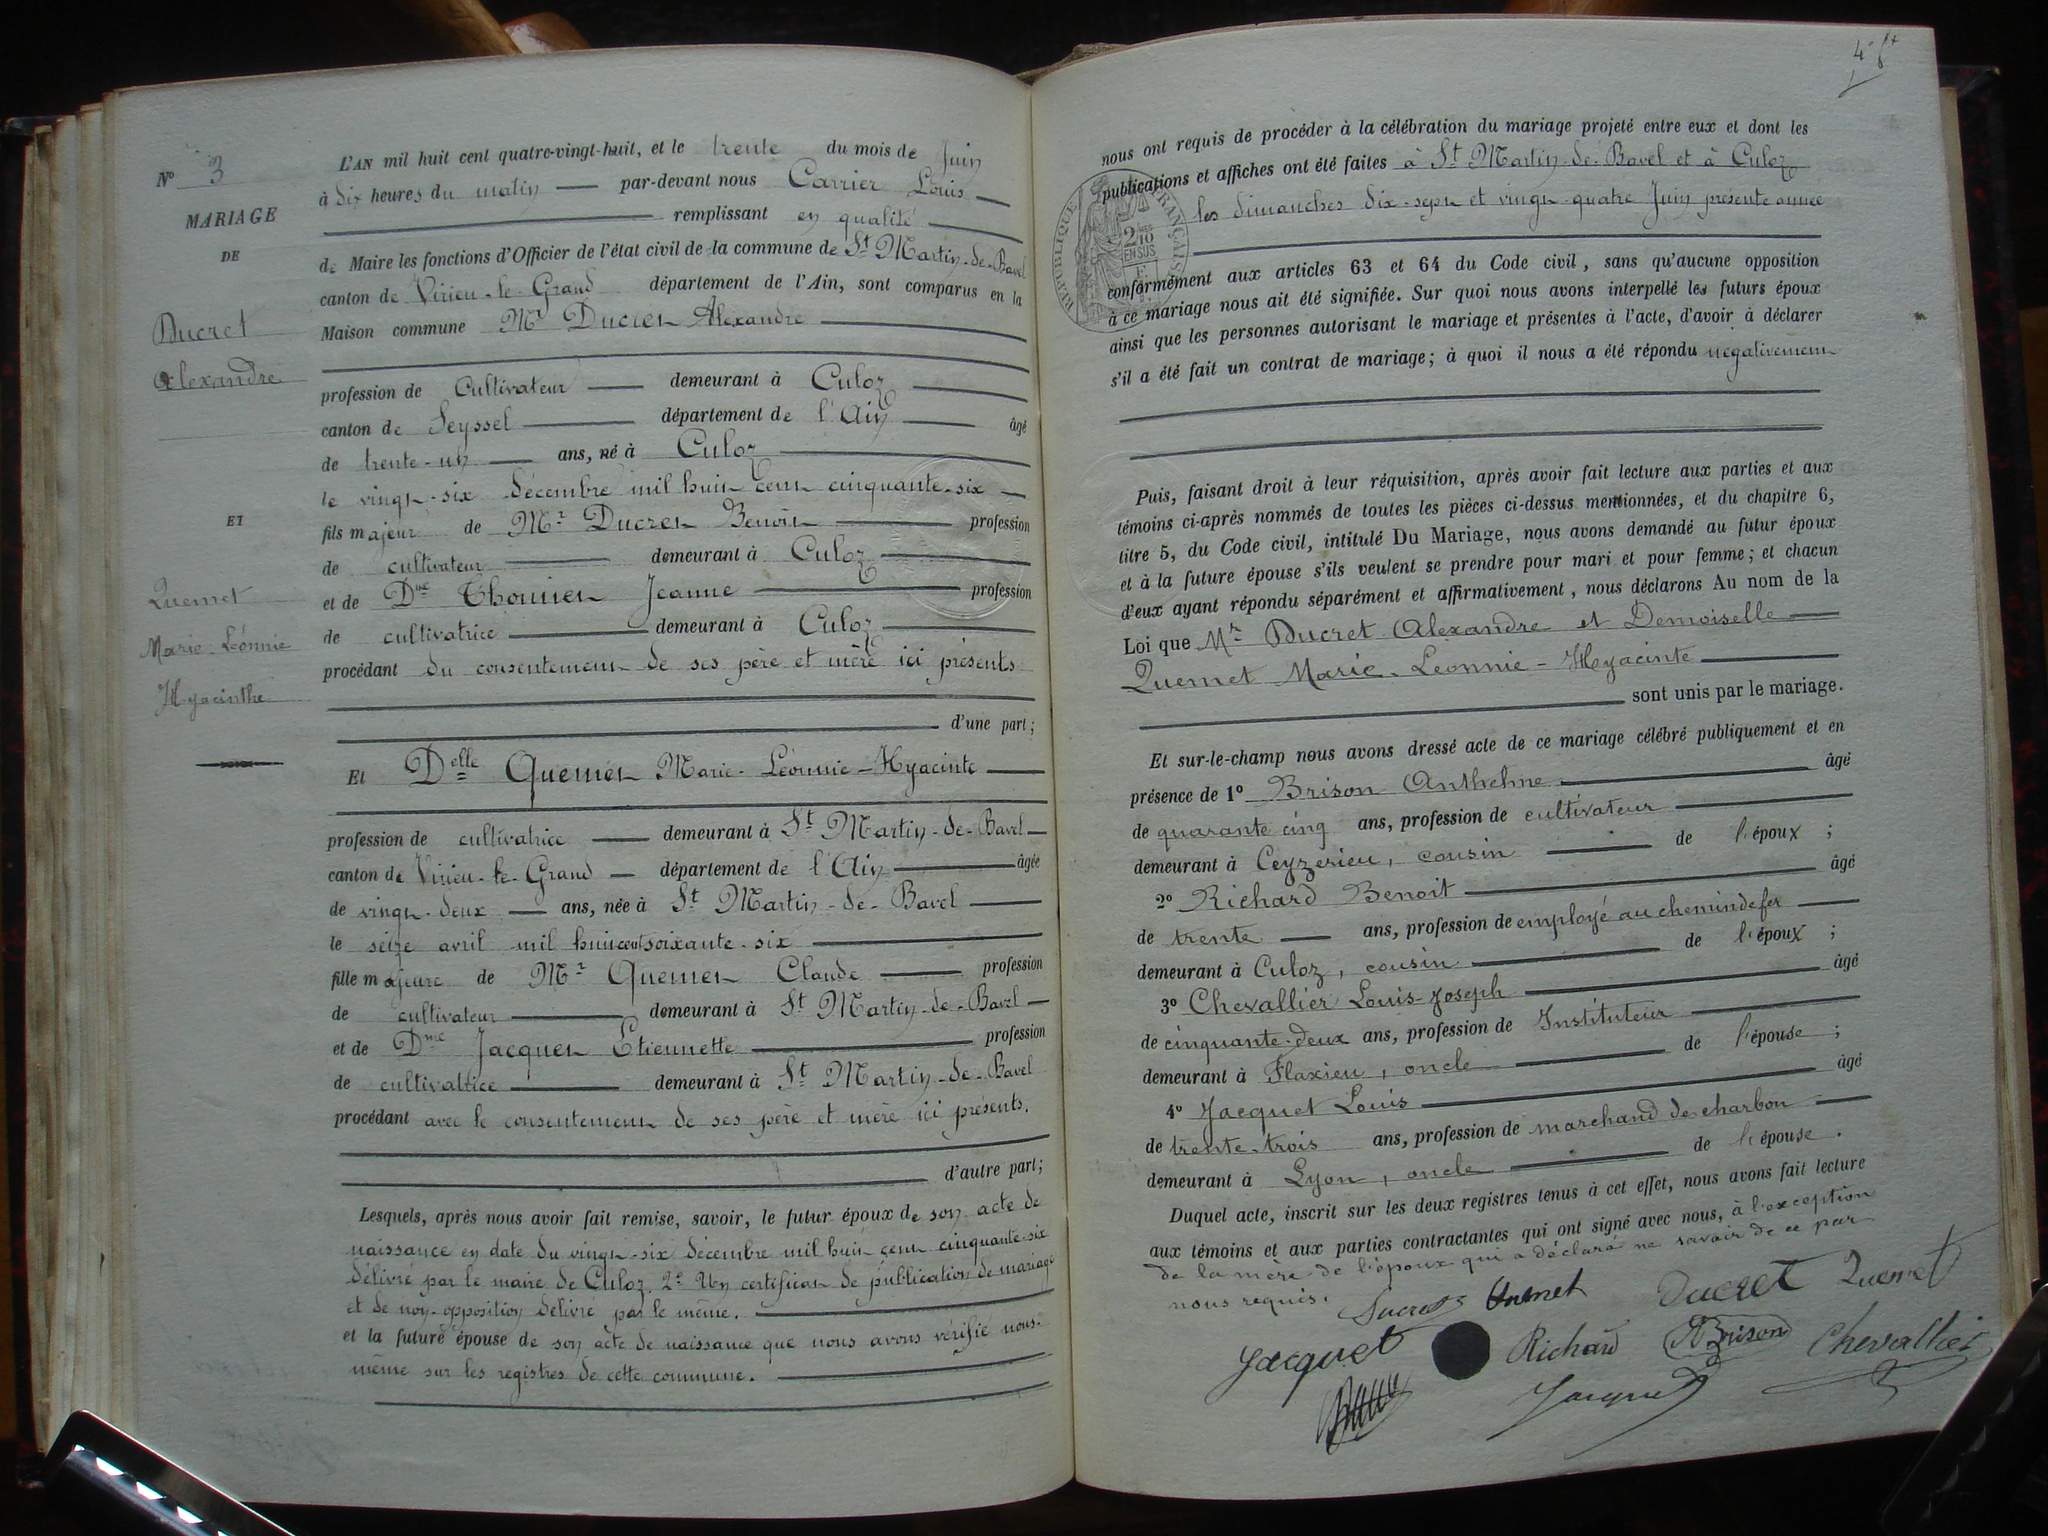 N° 3
MARIAGE
DE
Ducret
Alexandre
ET
Quemet
Marie-Léonnie
Hyacinthe
L'AN mil huit cent quatre-vingt-huit, et le trente du mois de Juin
à dix heures du matin par-devant nous Carrier Louis
remplissant en qualité
de Maire les fonctions d'Officier de l'état civil de la commune de St Martin-de-Bavel
canton de Virieu-le-Grand département de l'Ain, sont comparus en la
Maison commune Mr Ducret Alexandre
profession de Cultivateur demeurant à Culoz
canton de Seyssel département de l'Ain âgé
de trente-un ans, né à Culoz
le vingt-six décembre mil huit cent cinquante-six
fils majeur de Mr Ducret Benoit profession
de cultivateur demeurant à Culoz
et de Dme Jeanne profession
de cultivatrice demeurant à Culoz
procédant du consentement de ses père et mère ici présents
d'une part;
Et Delle Quemet Marie-Léonnie-Hyacinte
profession de cultivatrice demeurant à St Martin-de-Bavel
canton de Virieu-le-Grand département de l'Ain âgée
de vingt-deux ans, née à St Martin-de-Bavel
le seize avril mil huit cent soixante-six
fille majeure de Mr Quemet Claude profession
de cultivateur demeurant à St Martin-de-Bavel
et de Dme Jacquet Etiennette profession
de cultivatrice demeurant à St Martin-de-Bavel
procédant avec le consentement de ses père et mère ici présents.
d'autre part;
Lesquels, après nous avoir fait remise, savoir, le futur époux de son acte de
naissance en date du vingt-six décembre mil huit cent cinquante-six
délivré par le maire de Culoz. 2° Un certificat de publication de mariage
et de non-opposition délivré par le même.
et la future épouse de son acte de naissance que nous avons vérifié nous-
même sur les registres de cette commune.
nous ont requis de procéder à la célébration du mariage projeté entre eux et dont les
publications et affiches ont été faites à St Martin-de-Bavel et à Culoz
les dimanches dix-sept et vingt-quatre Juin présente année
RÉPUBLIQUE FRANÇAISE
2/10
EN SUS
conformément aux articles 63 et 64 du Code civil, sans qu'aucune opposition
à ce mariage nous ait été signifiée. Sur quoi nous avons interpellé les futurs époux
ainsi que les personnes autorisant le mariage et présentes à l'acte, d'avoir à déclarer
s'il a été fait un contrat de mariage; à quoi il nous a été répondu négativement
Puis, faisant droit à leur réquisition, après avoir fait lecture aux parties et aux
témoins ci-après nommés de toutes les pièces ci-dessus mentionnées, et du chapitre 6,
titre 5, du Code civil, intitulé Du Mariage, nous avons demandé au futur époux
et à la future épouse s'ils veulent se prendre pour mari et pour femme; et chacun
d'eux ayant répondu séparément et affirmativement, nous déclarons Au nom de la
Loi que Mr Ducret Alexandre et Demoiselle
Quemet Marie-Leonnie-Hyacinte
sont unis par le mariage.
Et sur-le-champ nous avons dressé acte de ce mariage célébré publiquement et en
présence de 1° Brison Anthelme âgé
de quarante cinq ans, profession de cultivateur
demeurant à Ceyzerieu, cousin de l'époux;
2° Richard Benoit âgé
de trente ans, profession de employé au chemin de fer
demeurant à Culoz, cousin de l'époux;
3° Chevallier Louis-Joseph âgé
de cinquante-deux ans, profession de Instituteur
demeurant à Flaxieu, oncle de l'épouse;
4° Jacquet Louis âgé
de trente-trois ans, profession de marchand de charbon
demeurant à Lyon, oncle de l'épouse.
Duquel acte, inscrit sur les deux registres tenus à cet effet, nous avons fait lecture
aux témoins et aux parties contractantes qui ont signé avec nous, à l'exception
de la mère de l'époux qui a déclaré ne savoir de ce par
nous requis.
Ducret Quemet
Jacquet Richard Brison Chevallier
Jacquet